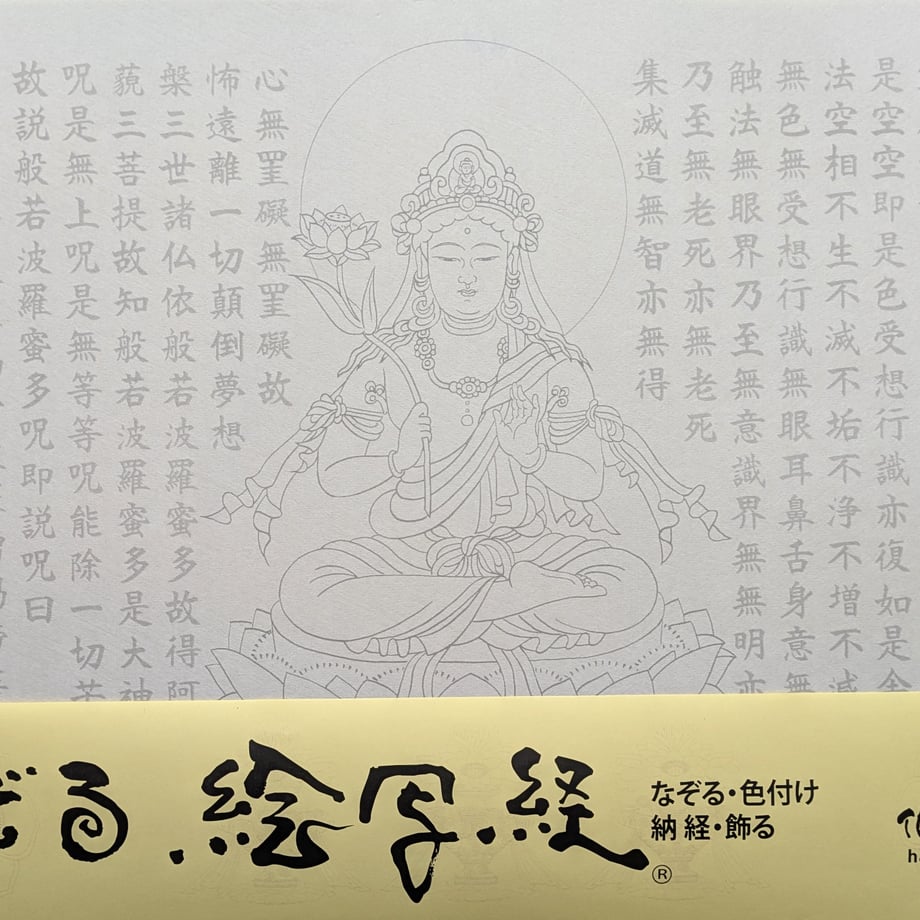 是空空即是色受想行識亦復如是舍
法空相不生不滅不垢不浄不増不減
無色無受想行識無眼耳鼻舌身意無
触法無眼界乃至無意識界無無明亦
乃至無老死亦無老死
集滅道無智亦無得
心無罣礙無罣礙故
怖遠離一切顛倒夢想
槃三世諸仏依般若波羅蜜多故得阿
藐三菩提故知般若波羅蜜多是大神
呪是無上呪是無等等呪能除一切苦
故説般若波羅蜜多呪即説呪曰
ぞる 絵写経®
なぞる・色付け
納経・飾る